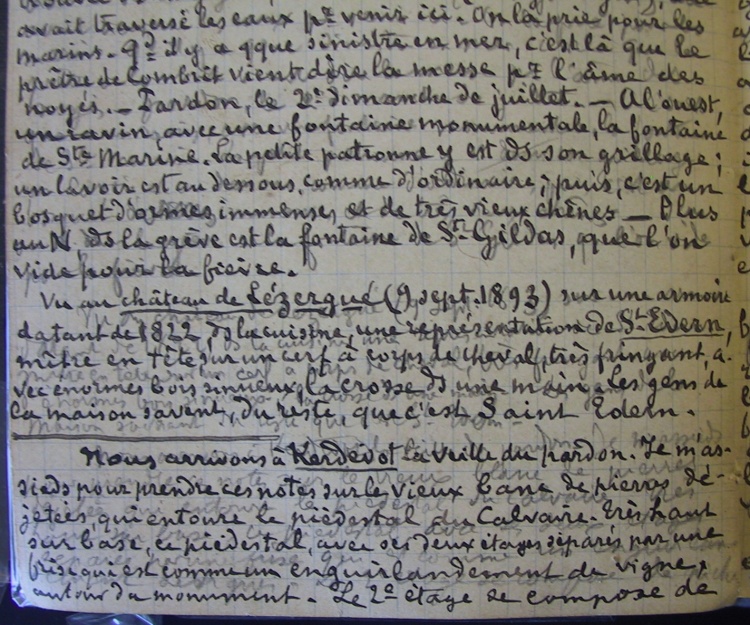 avait traversé les eaux pr venir ici. On la prie pour les
marins. Qd il y a qque sinistre en mer, c'est là que le
prêtre de Combrit vient dire la messe pr l'âme des
noyés. — Pardon, le 2e dimanche de juillet. — A l'ouest,
un ravin, avec une fontaine monumentale, la fontaine
de Ste Marine. La petite patronne y est ds son grillage ;
un lavoir est au dessous, comme d'ordinaire ; puis, c'est un
bosquet d'ormes immenses et de très vieux chênes — Plus
au N, ds la grève est la fontaine de St Gildas, que l'on
vide pour la fièvre.
Vu au château de Lézergué (9 sept. 1893) sur une armoire
datant de 1822, ds la cuisine, une représentation de St Edern,
mître en tête sur un cerf à corps de cheval, très fringant, a-
vec énormes bois sinueux, la crosse ds une main. Les gens de
la maison savent, du reste, que c'est Saint Edern.
Nous arrivons à Kerdévot la veille du pardon. Je m'as-
sieds pour prendre ces notes sur le vieux banc de pierres dé-
jetées, qui entoure le piédestal du Calvaire. Très haut
sur base, ce piédestal, avec ses deux étages séparés par une
frise qui est comme un enguirlandement de vigne,
autour du monument. Le 2e étage se compose de